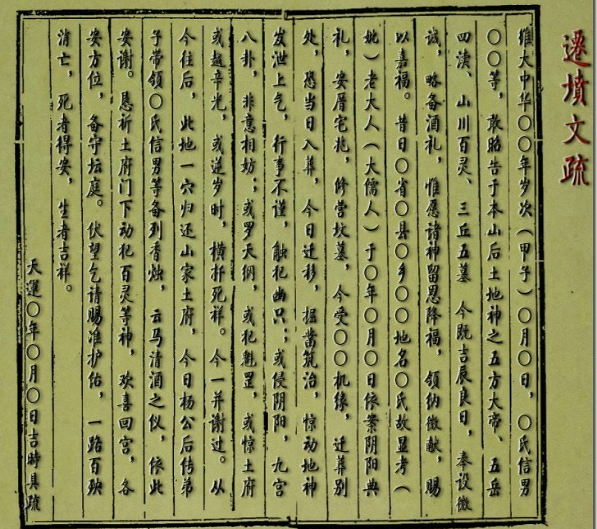 遷墳文疏
维大中华〇〇年岁次（甲子）〇月〇日，〇氏信男
〇〇等，敢昭告于本山后土地神之五方大帝、五岳
四渎、山川百灵、三丘五墓 今既吉辰良日，奉设微
诚，略备酒礼，惟愿诸神留恩降福，领纳微献，赐
以嘉福。昔日〇省〇县〇乡〇〇地名〇氏故显考（
妣）老大人（大儒人）于〇年〇月〇日依案阴阳典
礼，安厝宅兆，修营坟墓，今受〇〇机缘，迁葬别
处，恐当日八葬，今日迁移，掘凿筑治，惊动地神
发泄上气，行事不谨，触犯幽只；或侵阴阳，九宫
八卦，非意相妨；或罗天纲，或犯魁罡，或惊土府
或越辛光，或逆岁时，横扦死祥。今一并谢过。从
今往后，此地一穴归还山家土府，今日杨公后传弟
子带领〇氏信男等备到香烛，云马清酒之仪，依此
安谢。恳祈土府门下动犯百灵等神，欢喜回宫，各
安方位，备守坛庭。伏望乞请赐准护佑，一路百殃
消亡，死者得安，生者吉祥。
天運〇年〇月〇日吉時具疏